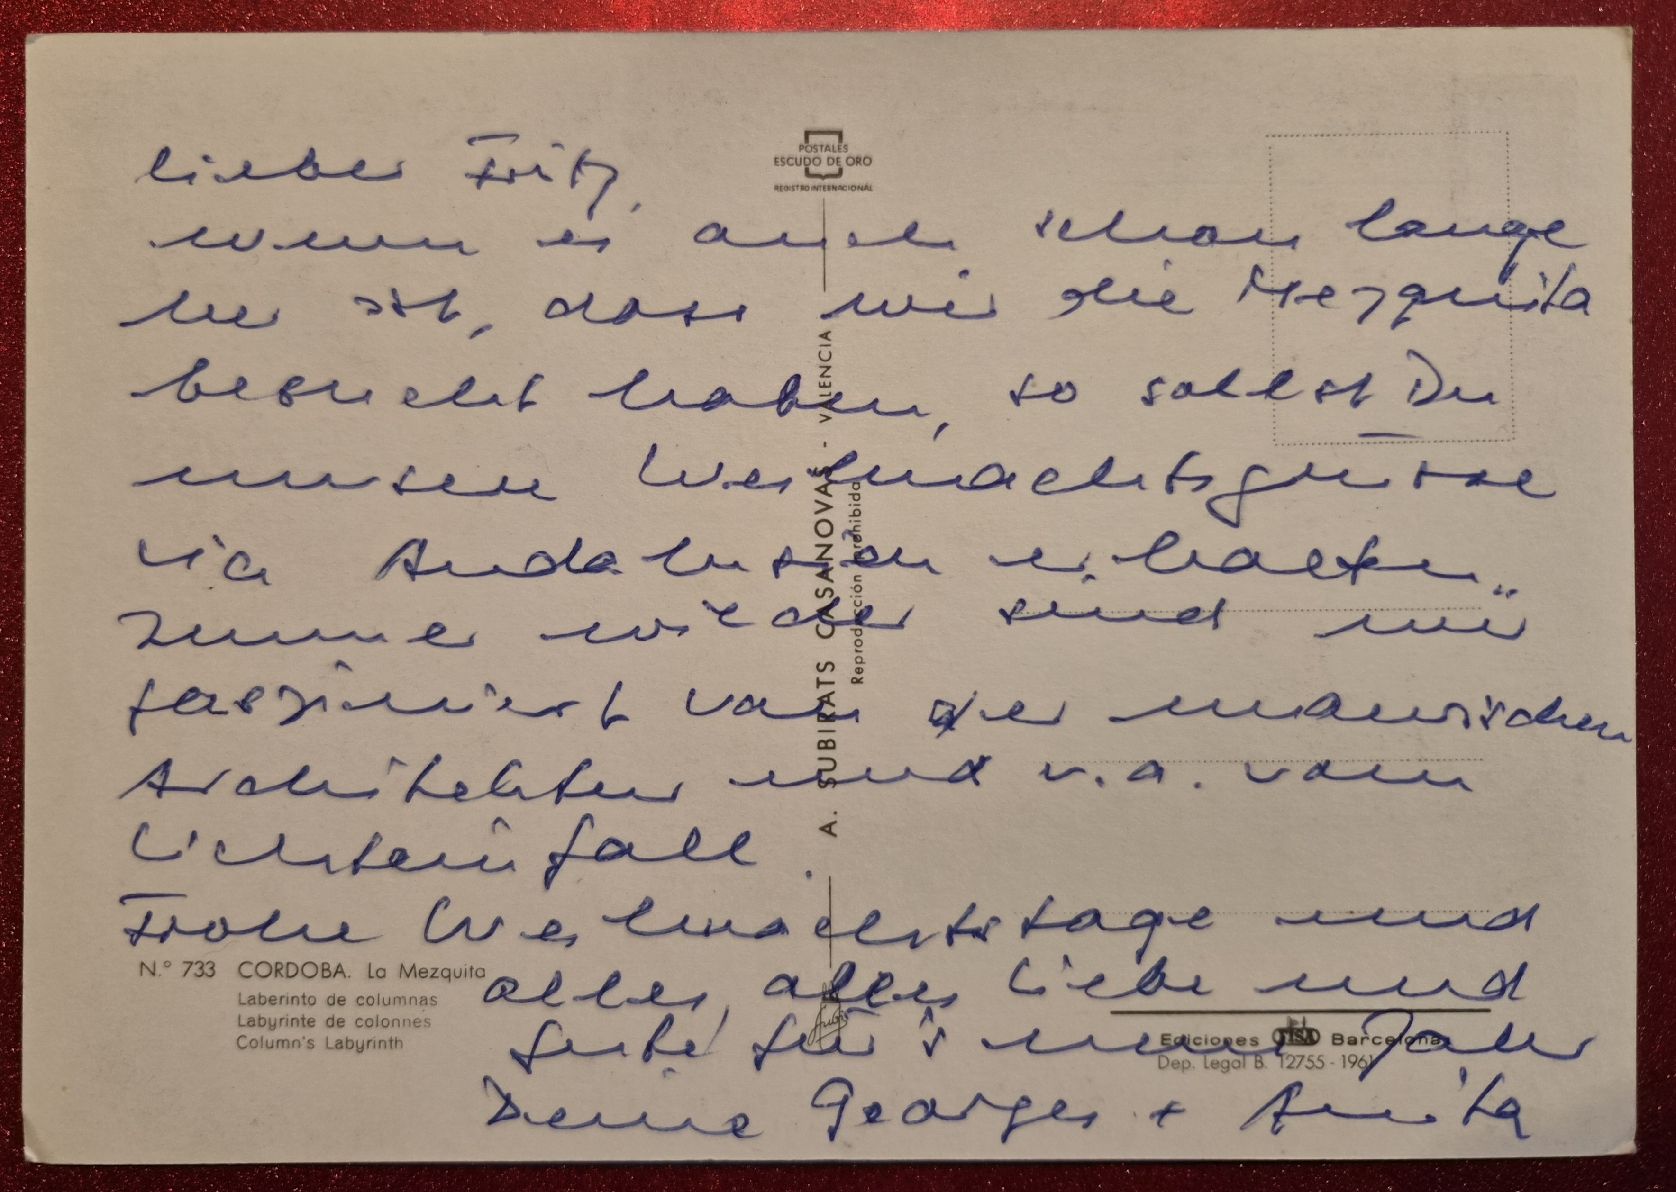 Lieber Fritz,
wenn es auch schon lange
her ist, dass wir die Mezquita
besucht haben, so sollst Du
unsere Weihnachtsgrüsse
via Andalusien erhalten.
Immer wieder sind wir
fasziniert von der maurischen
Architektur und v.a. vom
Lichteinfall.
Frohe Weihnachtstage und
alles, alles Liebe und
Gute für's neue Jahr
Deine Georges + Anita
POSTALES
ESCUDO DE ORO
REGISTRO INTERNACIONAL
A. SUBIRATS CASANOVAS - VALENCIA
Reproducción prohibida
N.º 733 CORDOBA. La Mezquita
Laberinto de columnas
Labyrinte de colonnes
Column's Labyrinth
Ediciones FISA Barcelona
Dep. Legal B. 12755 - 1961